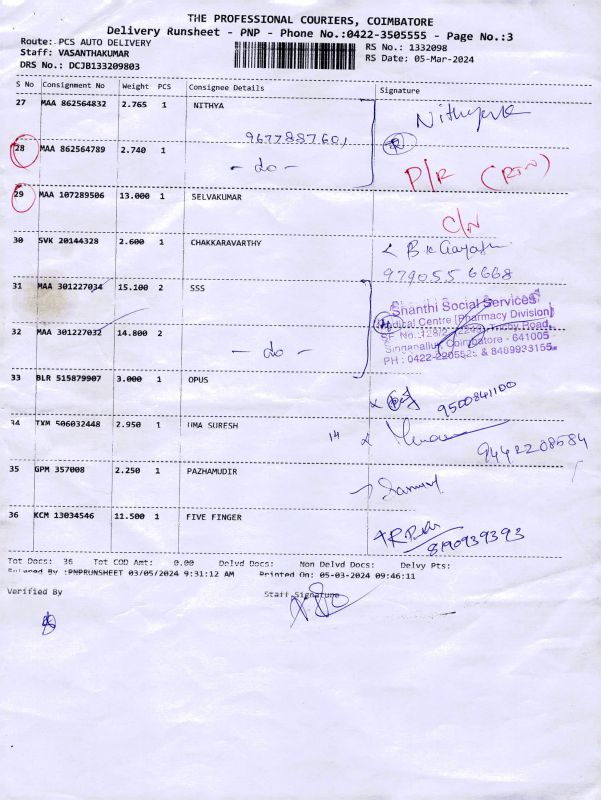 THE PROFESSIONAL COURIERS, COIMBATORE
Delivery Runsheet - PNP - Phone No.:0422-3505555 - Page No.:3
Route: PCS AUTO DELIVERY
RS No.: 1332098
Staff: VASANTHAKUMAR
RS Date: 05-Mar-2024
DRS No.: DCJB133209803
S No Consignment No Weight PCS Consignee Details Signature
27 MAA 862564832 2.765 1 NITHYA
9677887601
28 MAA 862564789 2.740 1
- do -
P/R (RTN)
29 MAA 107289506 13.000 1 SELVAKUMAR
C/N
30 SVK 20144328 2.600 1 CHAKKARAVARTHY
9790556668
31 MAA 301227034 15.100 2 SSS
Shanthi Social Services
Medical Centre (Pharmacy Division)
Trichy Road,
Singanallur, Coimbatore - 641005
PH : 0422-2205525 & 8489933155
32 MAA 301227032 14.800 2
- do -
33 BLR 515879907 3.000 1 OPUS
9500841100
34 TXM 506032448 2.950 1 UMA SURESH
14
9442208584
35 GPM 357008 2.250 1 PAZHAMUDIR
36 KCM 13034546 11.500 1 FIVE FINGER
8190939393
Tot Docs: 36 Tot COD Amt: 0.00 Delvd Docs: Non Delvd Docs: Delvy Pts:
Entered By :PNPRUNSHEET 03/05/2024 9:31:12 AM Printed On: 05-03-2024 09:46:11
Verified By
Staff Signature